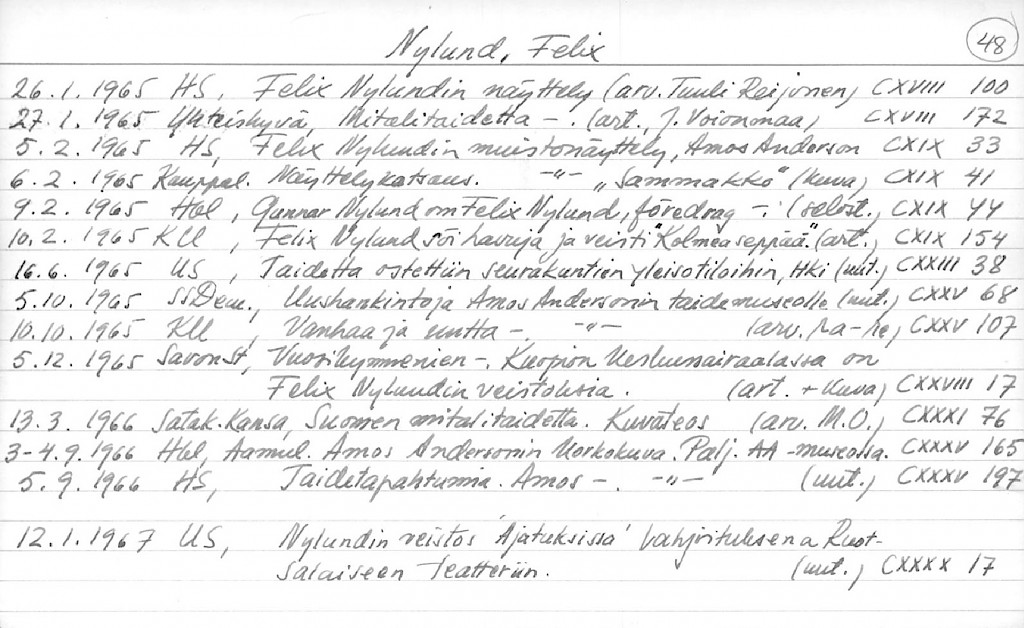 Nylund, Felix 48
26.1.1965 HS, Felix Nylundin näyttely (arv. Tuuli Reijonen) CXVIII 100
27.1.1965 Yhteishyvä, Mitalitaidetta –. (art., J. Voionmaa) CXVIII 172
5.2.1965 HS, Felix Nylundin muistonäyttely, Amos Anderson CXIX 33
6.2.1965 Kauppal. Näyttelykatsaus. –"– „Sammakko" (kuva) CXIX 41
9.2.1965 Hbl, Gunnar Nylund om Felix Nylund, föredrag –. (selost., CXIX 44
10.2.1965 KU, Felix Nylund söi havuja ja veisti "Kolmea seppää". (art., CXIX 154
16.6.1965 US, Taidetta ostettiin seurakuntien yleisötiloihin, Hki (uut.) CXXIII 38
5.10.1965 SSDem., Uushankintoja Amos Andersonin taidemuseolle (uut.) CXXV 68
10.10.1965 KU, Vanhaa ja uutta –. –"– (arv. ha-re) CXXV 107
5.12.1965 Savon St, Vuosikymmenien –. Kuopion Keskussairaalassa on
Felix Nylundin veistoksia. (art. + kuva) CXXVIII 17
13.3.1966 Satak. Kansa, Suomen mitalitaidetta. Kuvateos (arv. M.O.) CXXXI 76
3–4.9.1966 Hbl, Aamul. Amos Andersonin korkokuva. Palj. AA-museossa. CXXXV 165
5.9.1966 HS, Taidetapahtumia. Amos –. –"– (uut.) CXXXV 197
12.1.1967 US, Nylundin veistos 'Ajatuksissa' lahjoituksena Ruot-
salaiseen Teatteriin. (uut.) CXXXX 17